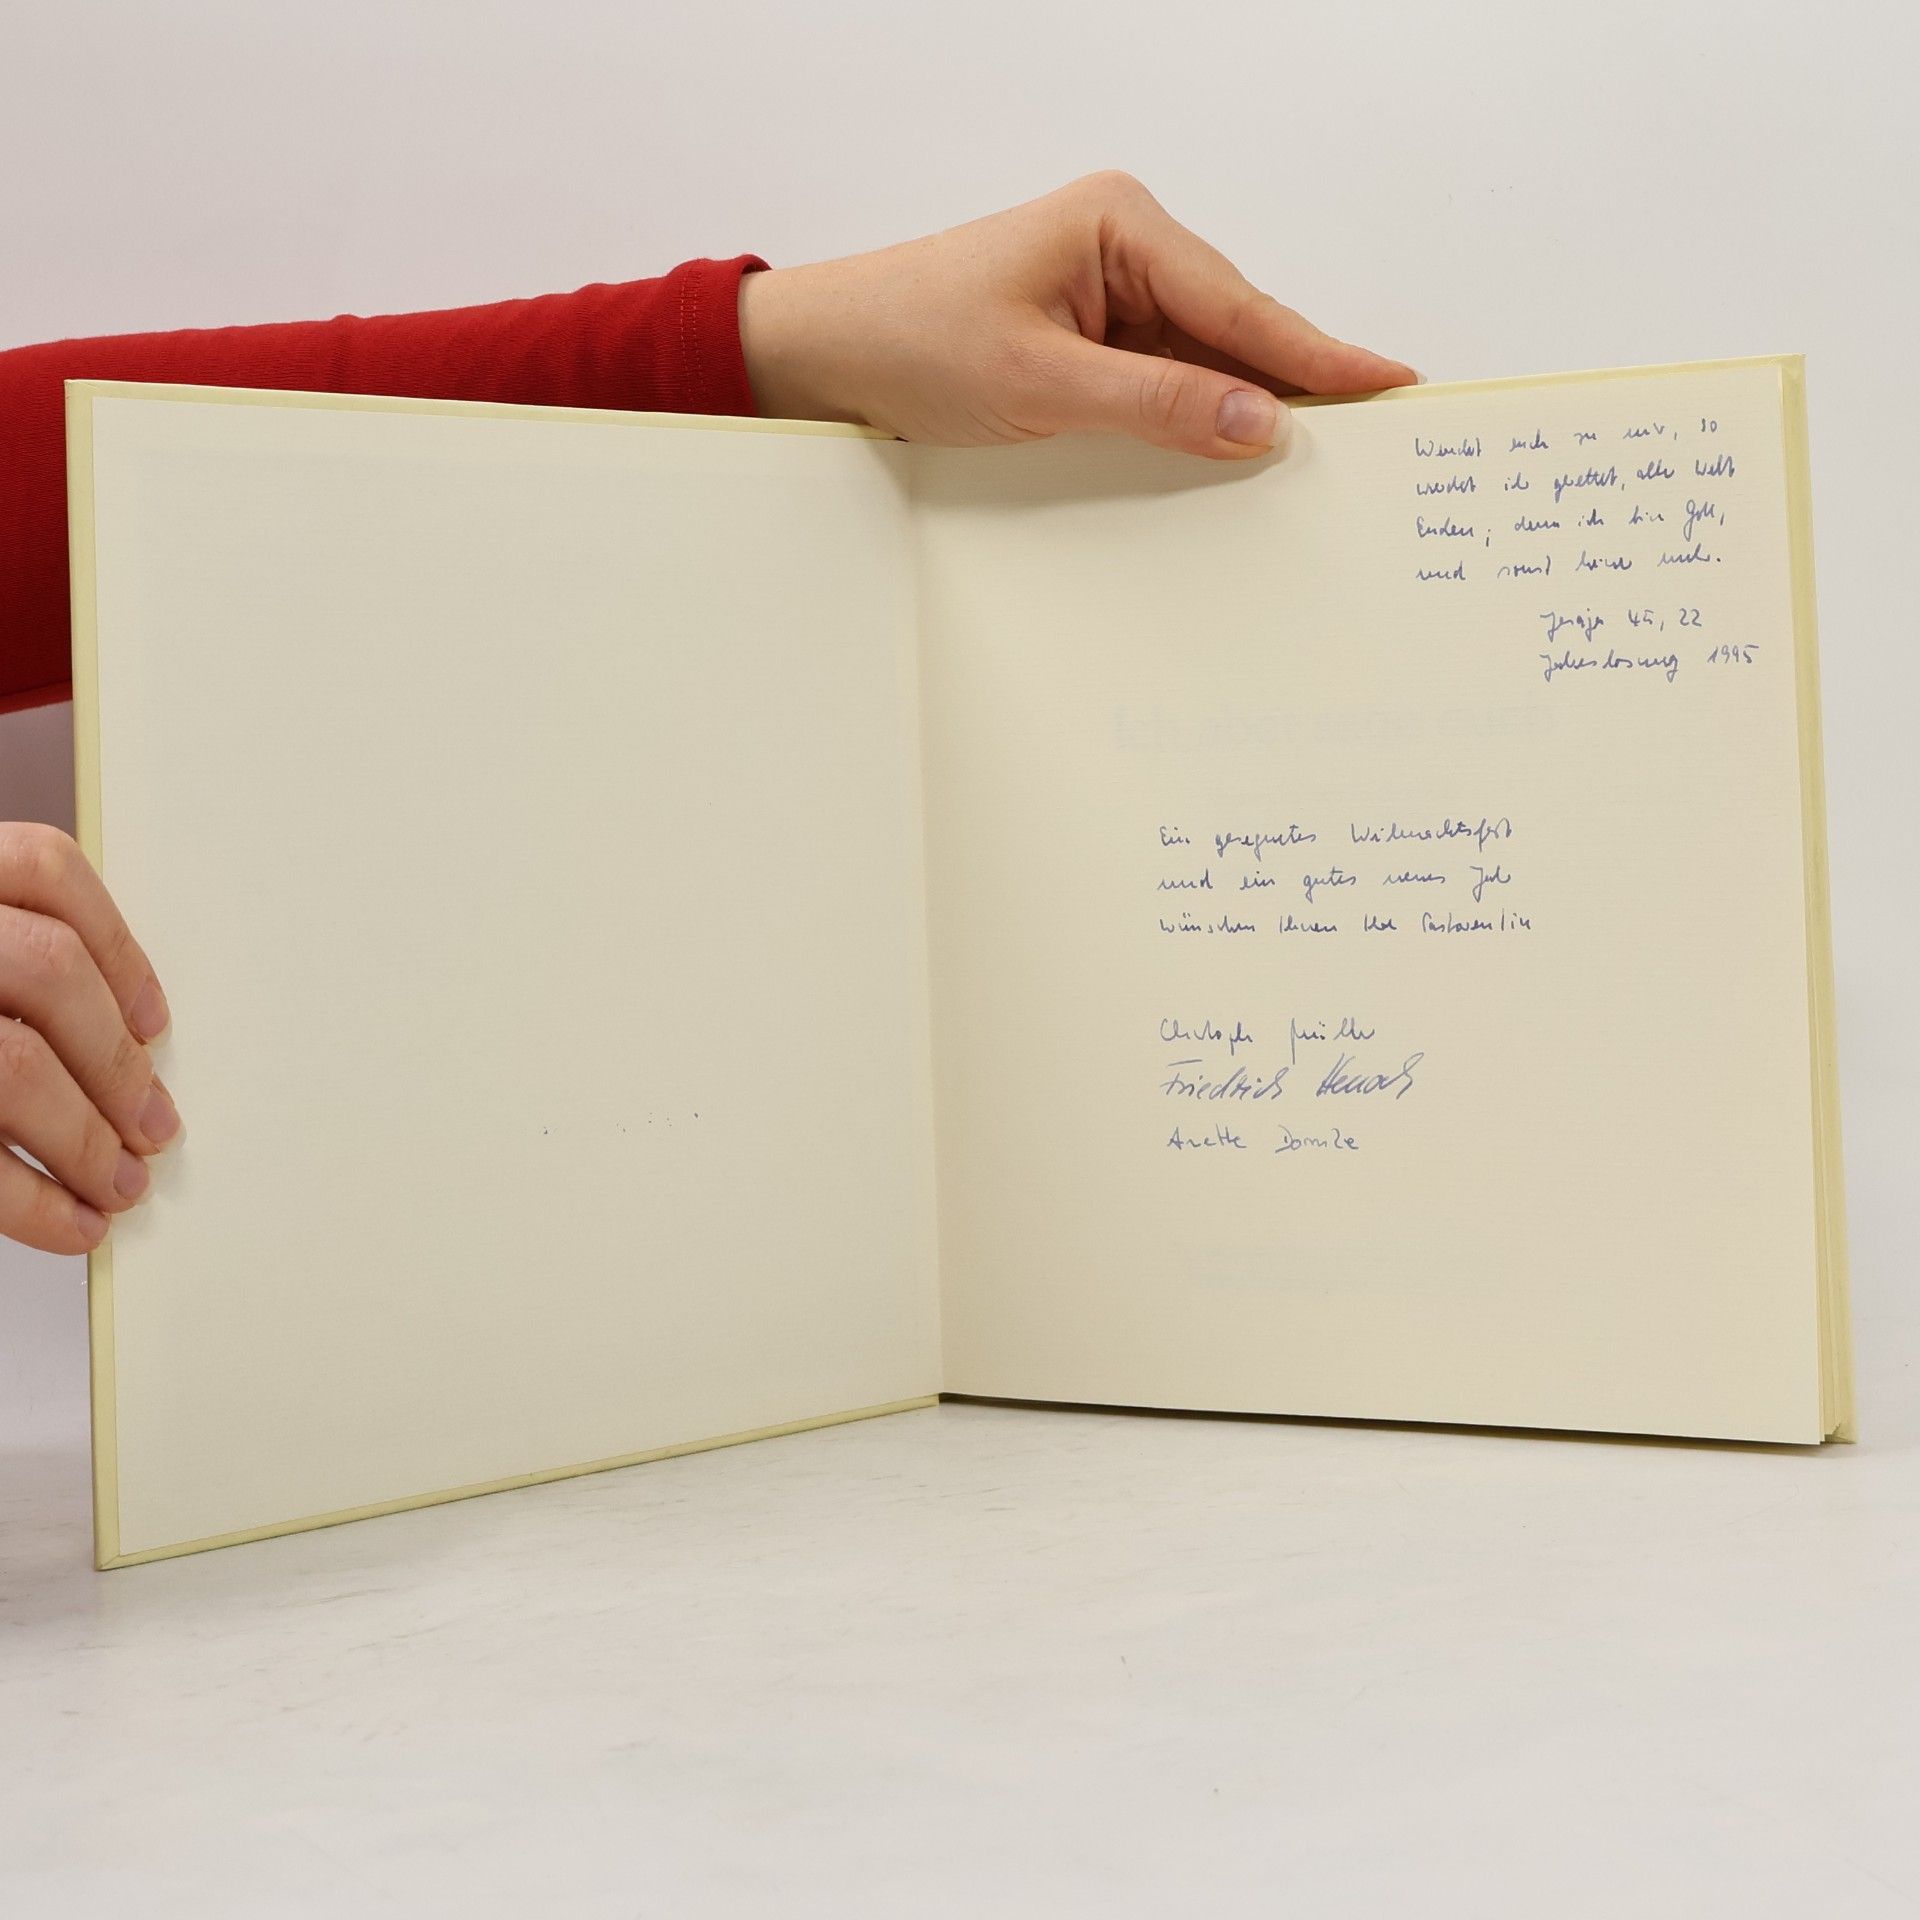 Wendet euch zu mir, so
werdet ihr gerettet, aller Welt
Enden; denn ich bin Gott,
und sonst keiner mehr.
Jesaja 45, 22
Jahreslosung 1995
Ein gesegnetes Weihnachtsfest
und ein gutes neues Jahr
wünschen Ihnen Ihre
Christoph Müller
Friedrich
Anette